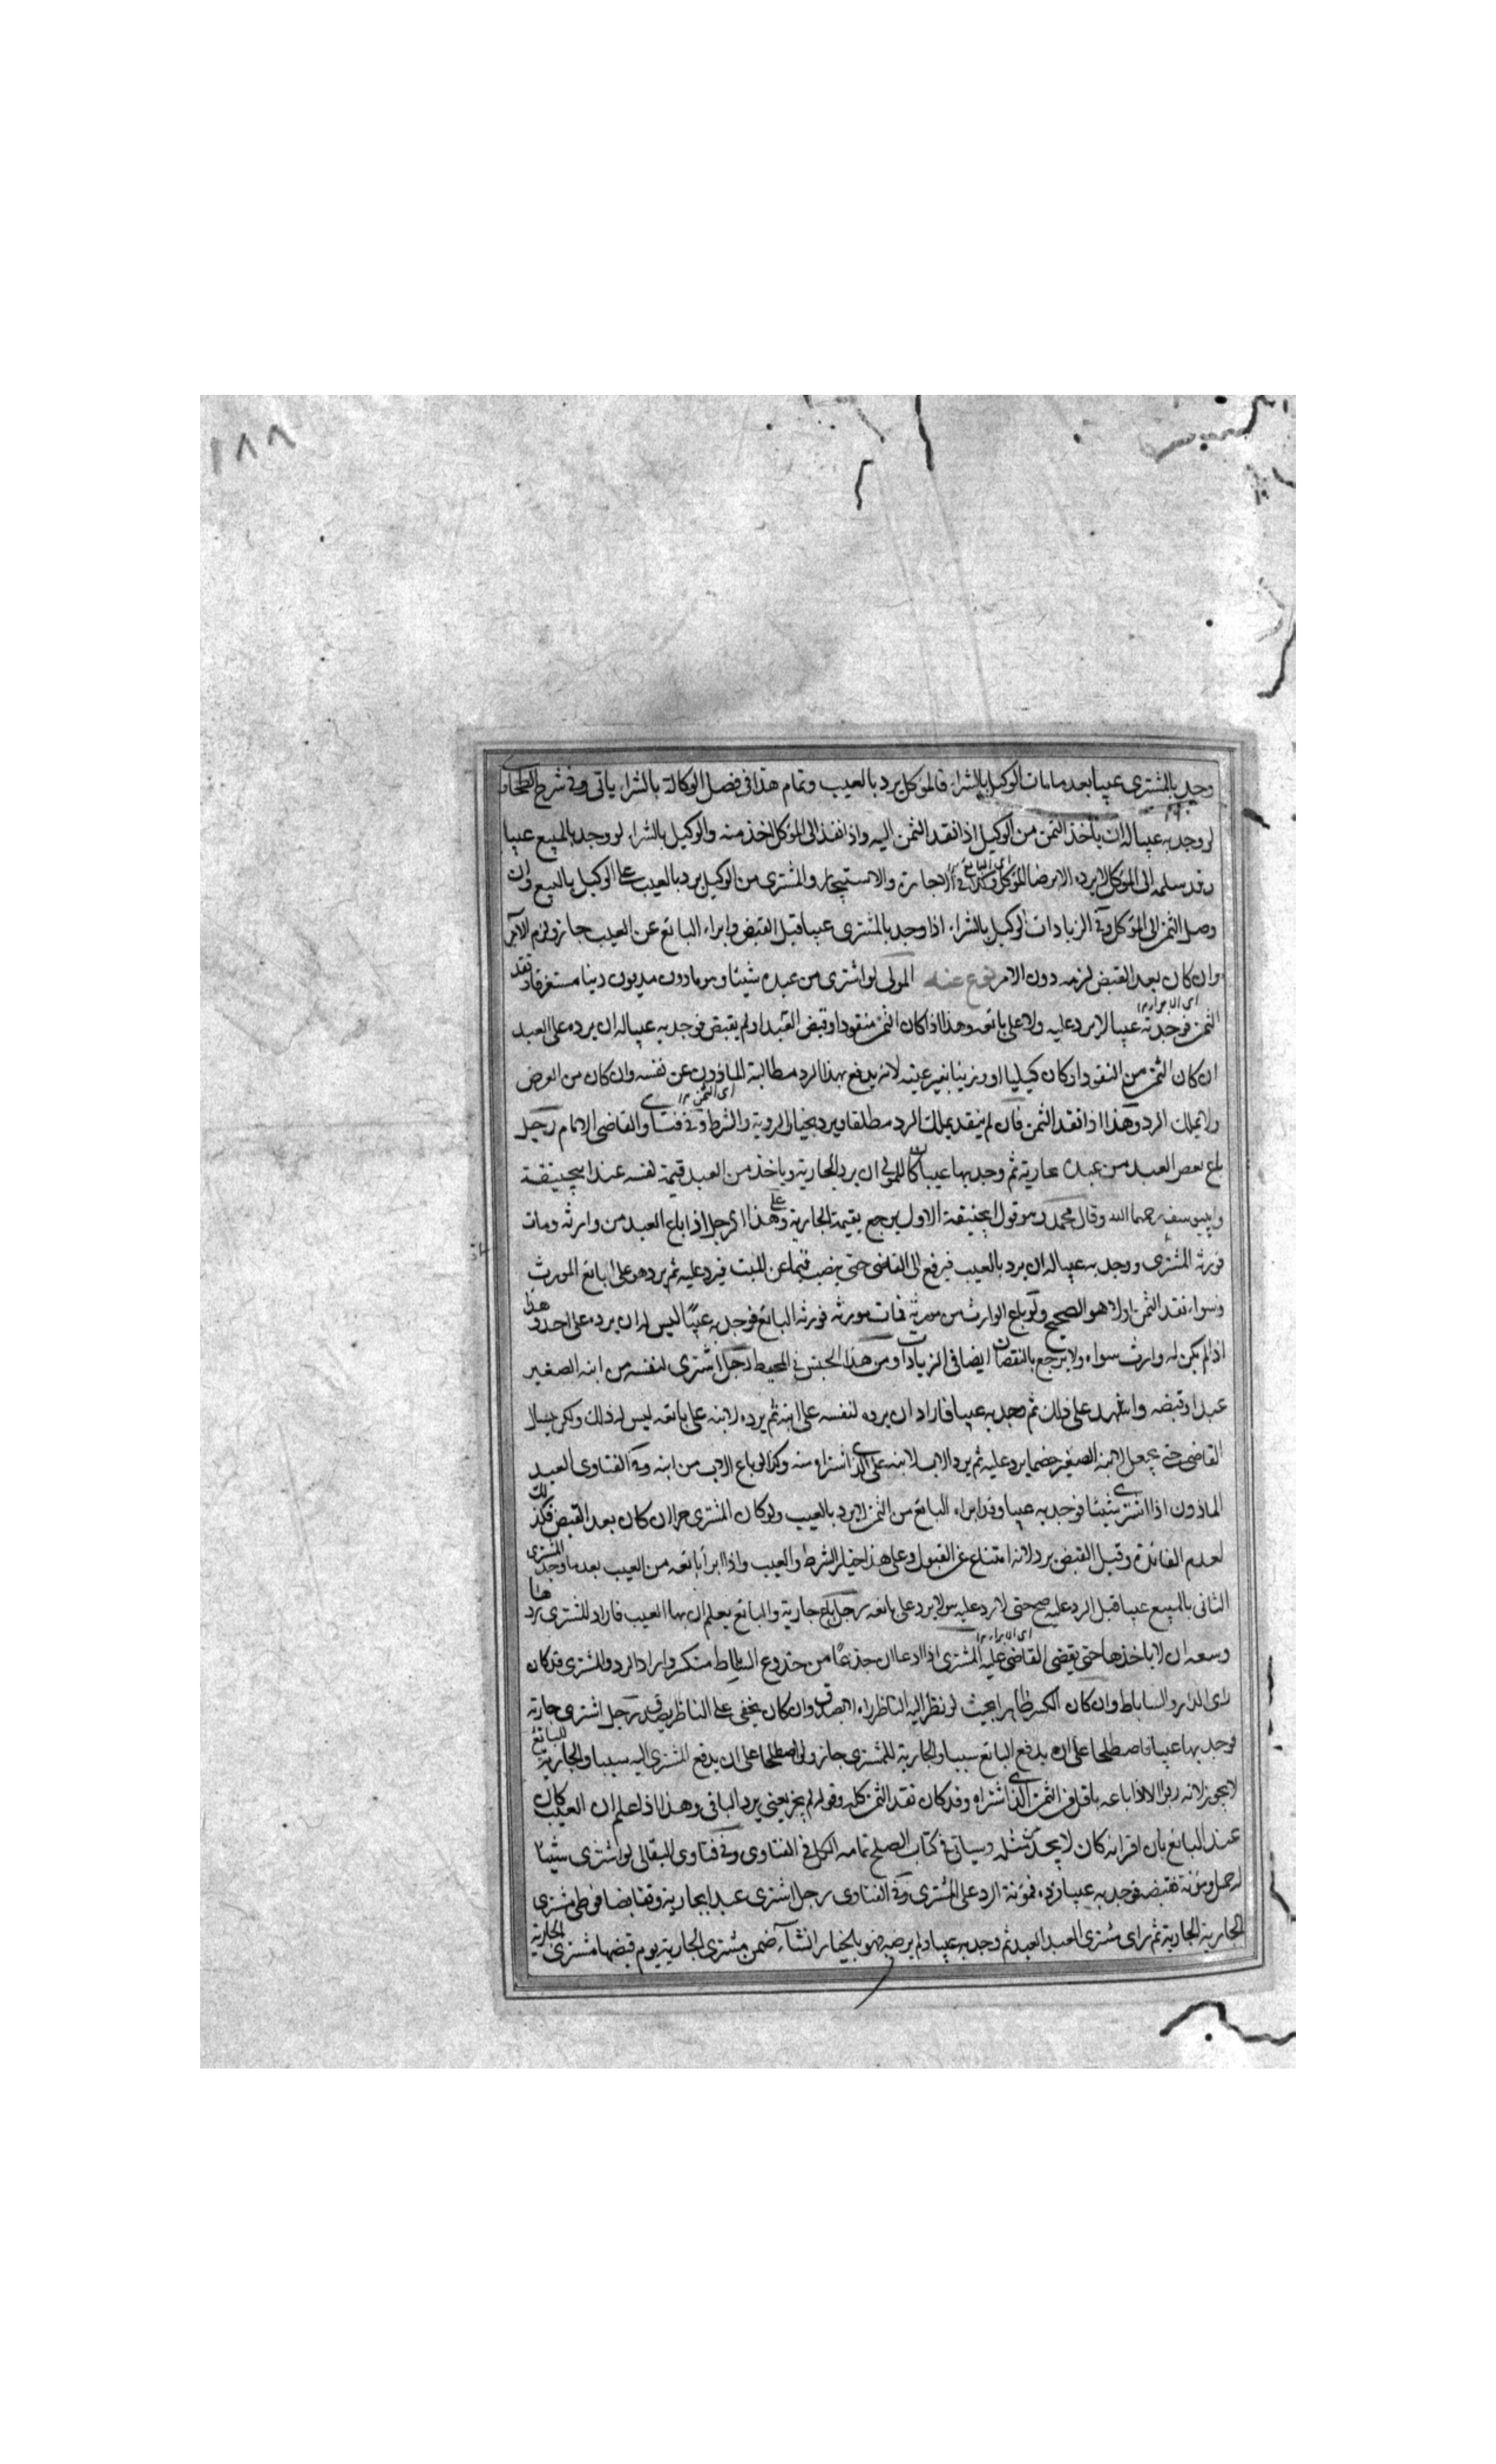 ١٨٨
وجد بالمشترى عيبا بعد ما مات الوكيل بالشراء فالموكل يرد بالعيب وتمام هذا فى فصل الوكالة بالشراء ياتى وفى شرح الطحاوى
لو وجد به عيبا له ان ياخذ الثمن من الوكيل اذا نقد الثمن اليه واذا نقد الى الموكل اخذ منه والوكيل بالشراء لو وجد بالمبيع عيبا
وقد سلمه الى الموكل لا يرده الا برضا الموكل وكذا فى الاجارة والاستيجار والمشترى من الوكيل يرد بالعيب على الوكيل بالبيع وان
وصل الثمن الى الموكل وفى الزيادات الوكيل بالشراء اذا وجد بالمشترى عيبا قبل القبض وابراء البائع عن العيب جاز ولزم الآمر
وان كان بعد القبض لزمه دون الامر نوع عنه المولى لو اشترى من عبده شيئا وهو ماذون مديون دينا مستغرقا ونقد
الثمن فوجد به عيبا لا يرد عليه ولا على بائعه وهذا اذا كان الثمن منقودا وقبض العبد او لم يقبض فوجد به عيبا له ان يرده على العبد
ان كان الثمن من النقود او كان كيليا او وزنيا بغير عينه لانه يدفع بهذا الرد مطالبة الماذون عن نفسه وان كان من العرض
لا يملك الرد وهذا اذا نقد الثمن فان لم ينقد يملك الرد مطلقا ويرد بخيار الروية والشرط وفى فتاوى القاضى الامام رجل
باع بعض العبد من عبده بجارية ثم وجد بها عيبا كان للمولى ان يرد الجارية وياخذ من العبد قيمة نفسه عند ابيحنيفة
وابييوسف رحمهما الله وقال محمد وهو قول ابيحنيفة الاول يرجع بقيمة الجارية وعلى هذا الرجل اذا باع العبد من وارثه ومات
فورثه المشترى ووجد به عيبا له ان يرد بالعيب فيرفع الى القاضى حتى ينصب قيما عن الميت فيرد عليه ثم يرد هو على البائع المورث
وسواء نقد الثمن اولا هو الصحيح ولو باع الوارث من مورثه فمات مورثه فورثه البائع فوجد به عيبا ليس له ان يرده على احد وهذا
اذا لم يكن له وارث سواه ولا يرجع بالنقصان ايضا فى الزيادات ومن هذا الجنس فى المحيط رجل اشترى لنفسه من ابنه الصغير
عبدا وقبضه واشهد على ذلك ثم وجد به عيبا فاراد ان يرده لنفسه على ابنه ثم يرده لابنه على بائعه ليس له ذلك ولكن يسال
القاضى حتى يجعل لابنه الصغير خصما يرد عليه ثم يرد الاب لابنه على الذى اشتراه منه وكذا لو باع الاب من ابنه وفى الفتاوى العبد
الماذون اذا اشترى شيئا فوجد به عيبا وقد ابراه البائع من الثمن لا يرد بالعيب ولو كان المشترى حرا ان كان بعد القبض فكذلك
لعدم الفائدة وقبل القبض يرد لانه امتناع عن القبول وعلى هذا خيار الشرط والعيب واذا ابرأ بائعه من العيب بعد ما وجد المشترى
الثانى بالمبيع عيبا قبل الرد عليه صح حتى لا رد عليه لا يرد على بائعه رجل باع جارية والبائع يعلم ان بها العيب فاراد المشترى ردها
وسعه ان لا ياخذها حتى يقضى القاضى عليه المشترى اذا ادعا ان جذعا من جذوع الساباط منكسر واراد الرد والمشترى قد كان
راى الدار والساباط وان كان الكسر ظاهرا بحيث لو نظر اليه الناظر راه لا يصدق وان كان يخفى على الناظر يصدق رجل اشترى جارية
فوجد بها عيبا فاصطلحا على ان يدفع البائع شيئا والجارية للمشترى جاز ولو اصطلحا على ان يدفع المشترى اليه شيئا والجارية للبائع
لا يجوز لانه ربوا الا اذا باعه باقل من الثمن الذى اشتراه وقد كان نقد الثمن كله وقوله لم يجز يعنى يرد الباقى وهذا اذا علم ان العيب كان
عند البائع بان اقر انه كان لا يحدث مثله وسياتى فى كتاب الصلح تمامه الكل فى الفتاوى وفى فتاوى البقالى لو اشترى شيئا
له حمل ومؤنة فقبضه فوجد به عيبا فرده فمؤنة الرد على المشترى وفى الفتاوى رجل اشترى عبدا بجارية وتقابضا فوطى مشترى
الجارية الجارية ثم راى مشترى العبد العبد ثم وجد به عيبا ولم يرضه فهو بالخيار ان شاء ضمن مشترى الجارية يوم قبضها مشترى الجارية